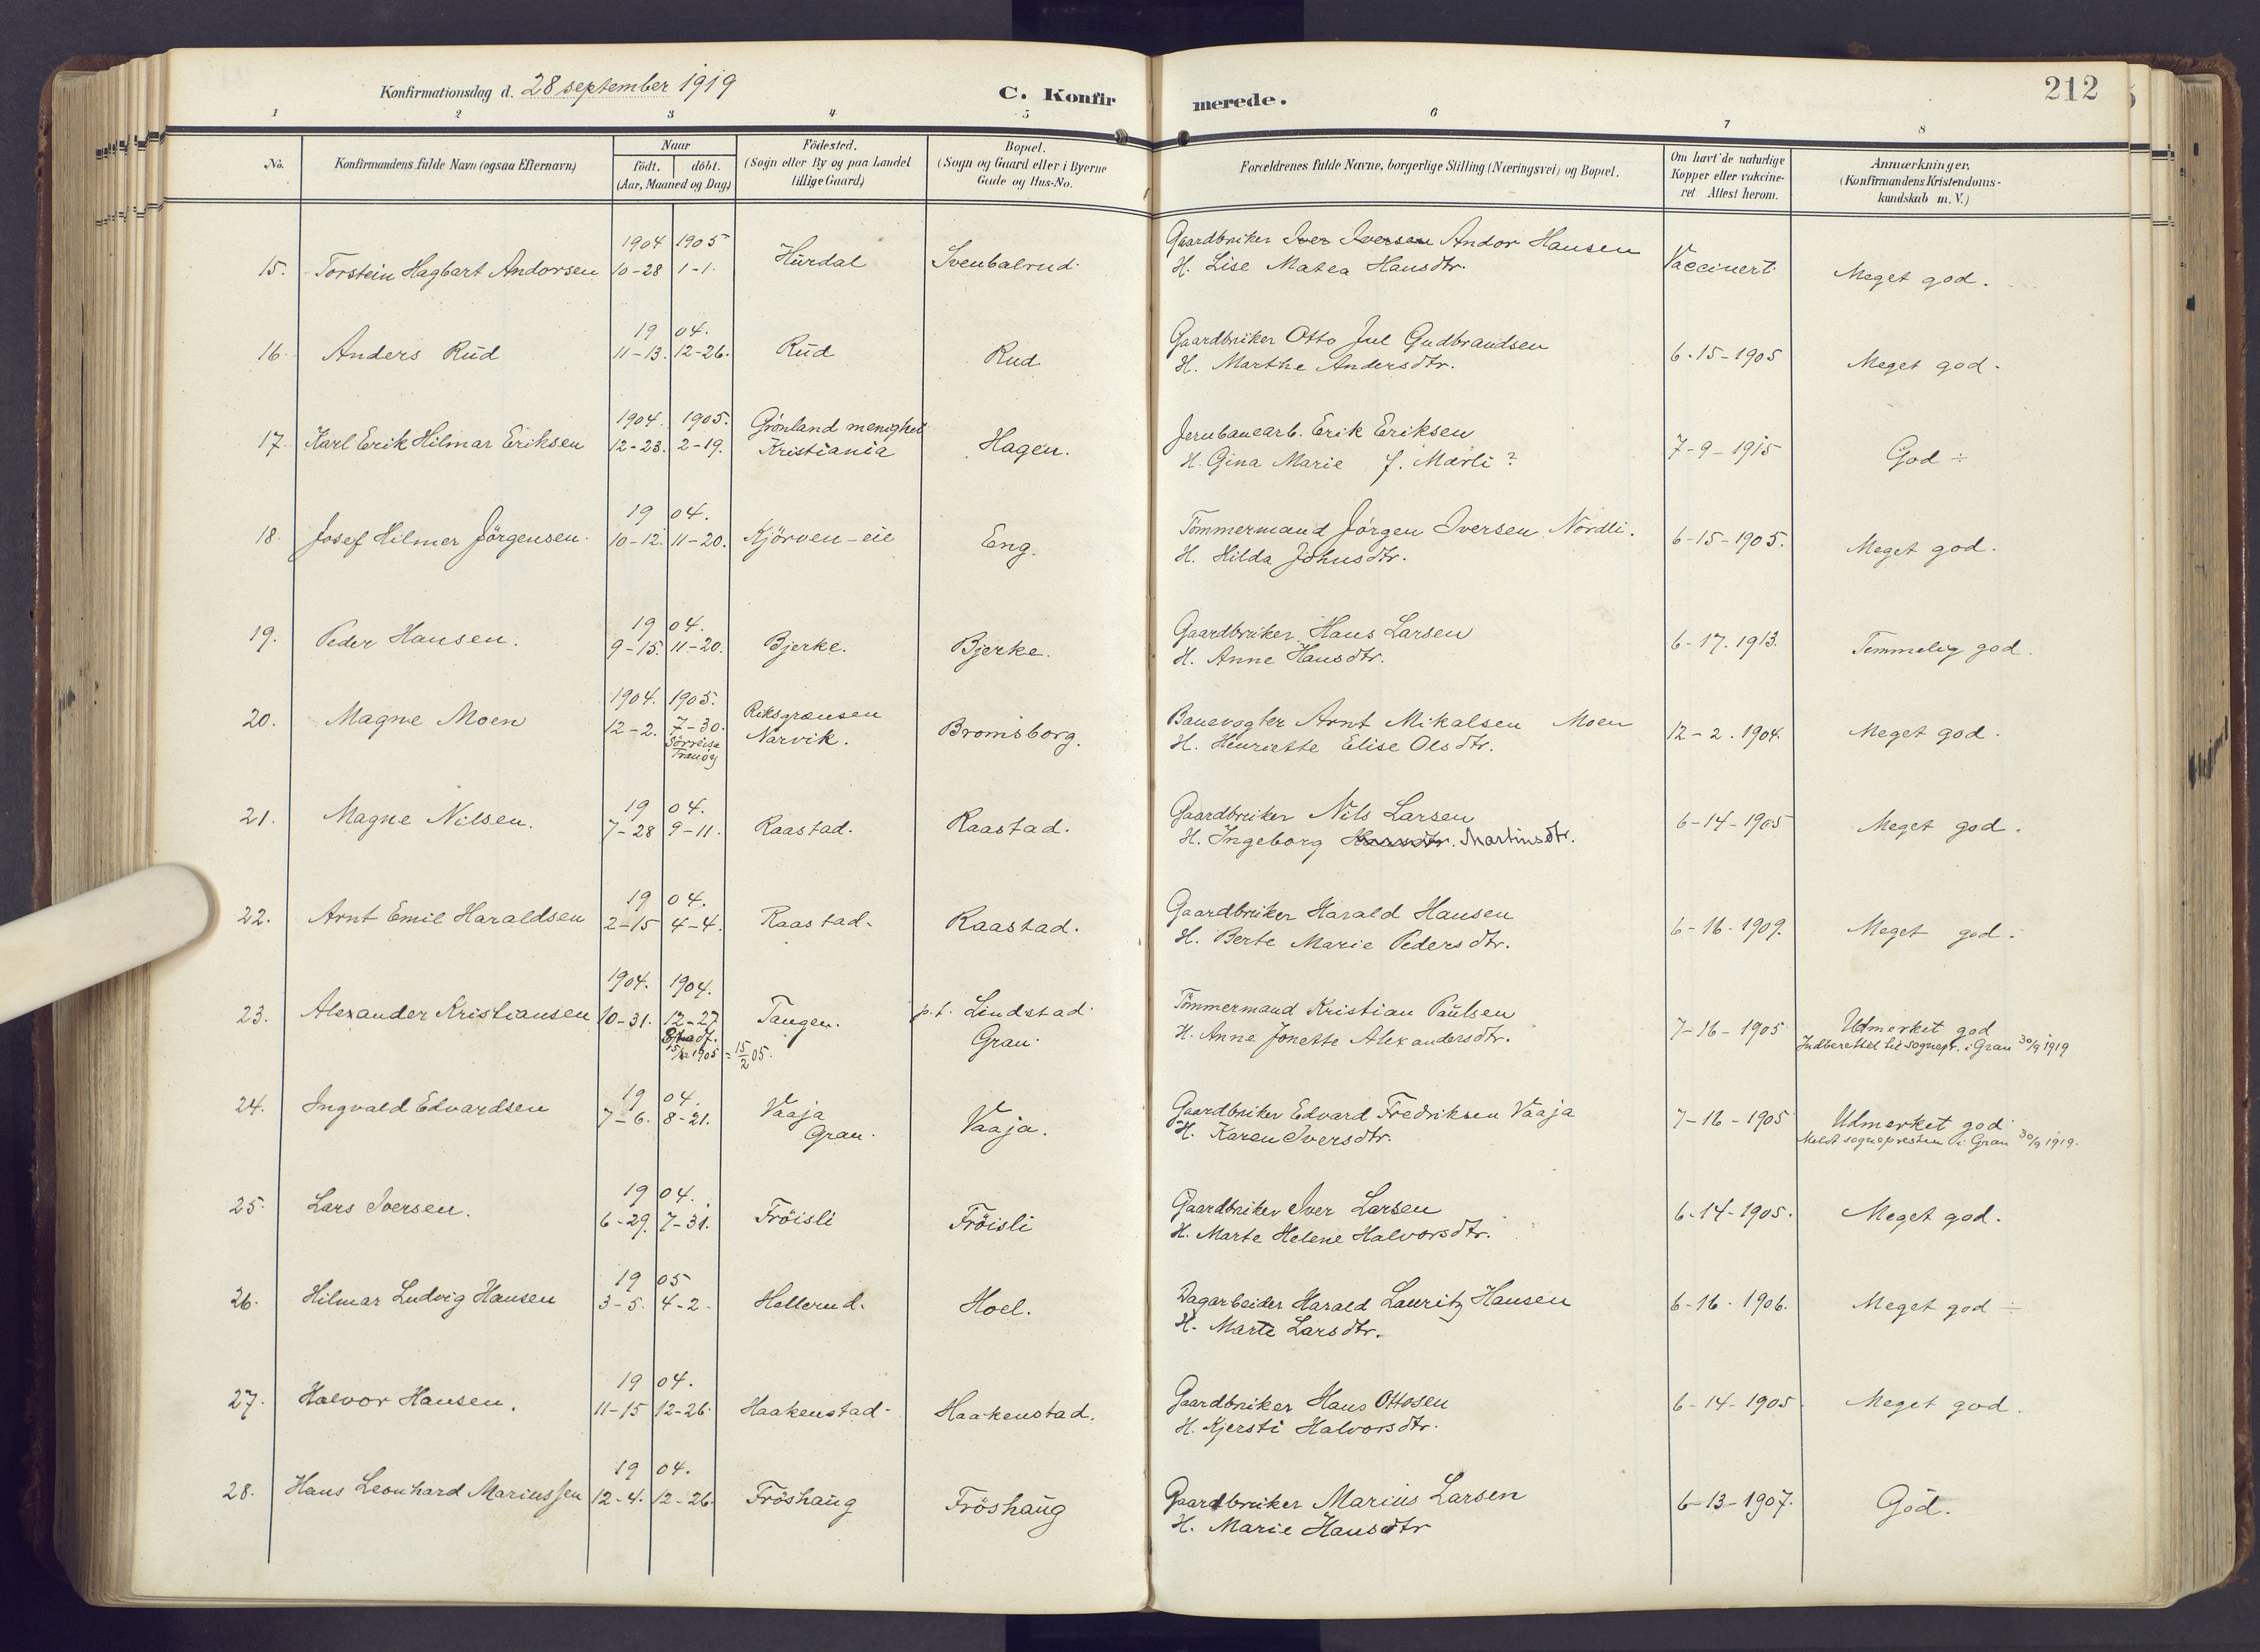 Konfirmationsdag d. 28 september 1919
C. Konfirmerede.
212
1 2 3 4 5 6 7 8
No.
Konfirmandens fulde Navn (ogsaa Efternavn)
Naar
födt. döbt.
(Aar, Maaned og Dag)
Födested.
(Sogn eller By og paa Landet
tillige Gaard)
Bopæl.
(Sogn og Gaard eller i Byerne
Gade og Hus-No.
Forældrenes fulde Navne, borgerlige Stilling (Næringsvei) og Bopæl.
Om havt de naturlige
Kopper eller vakcine-
ret Attest herom.
Anmærkninger.
(Konfirmandens Kristendoms-
kundskab m. V.)
1904 1905 Gaardbruker Iver Iversen Andor Hansen
15. Torstein Hagbart Andorsen 10-28 1-1. Hurdal Svenbalrud. H. Lise Matea Hansdtr. Vaccinert. Meget god.
19 04. Gaardbruker Otto Jul Gudbrandsen
16. Anders Rud 11-13. 12-26. Rud Rud H. Marthe Andersdtr. 6-15-1905 Meget god.
1904. 1905. Grönland menighet Jernbanearb. Erik Eriksen
17. Karl Erik Hilmar Eriksen 12-23. 2-19. Kristiania Hagen. H. Gina Marie f. Mærli? 7-9-1915 God ÷
19 04. Tömmermand Jörgen Iversen Nordli.
18. Josef Hilmer Jörgensen. 10-12. 11-20. Kjörven-eie Eng. H. Hilda Johnsdtr. 6-15-1905. Meget god.
19 04. Gaardbruker Hans Larsen
19. Peder Hansen. 9-15. 11-20. Bjerke. Bjerke. H. Anne Hansdtr. 6-17.1913. Temmelig god.
1904. 1905. Riksgrænsen Banevogter Arnt Mikalsen Moen
20. Magne Moen 12-2. 7-30. Narvik. Bromsborg. H. Henriette Elise Olsdtr. 12-2.1904. Meget god.
Sörreisa
Tranöy
19 04. Gaardbruker Nils Larsen
21. Magne Nilsen. 7-28 9-11. Raastad. Raastad. H. Ingeborg Hansdtr. Martinsdtr. 6-14-1905 Meget god.
19 04. Gaardbruker Harald Hansen
22. Arnt Emil Haraldsen 2-15 4-4. Raastad. Raastad. H. Berte Marie Pedersdtr. 6-16-1909. Meget god.
1904. 1904. Tömmermand Kristian Paulsen
23. Alexander Kristiansen 10-31. 12-27 Tangen. p.t. Lindstad. H. Anne Jonette Alexandersdtr. 7-16-1905 Udmerket god
1905 = 15/2 05. Gran. Indberettet til sognepr. i Gran 30/9 1919
19 04. Vaaja Gaardbruker Edvard Fredriksen Vaaja
24. Ingvald Edvardsen 7-6. 8-21. Gran. Vaaja. H. Karen Iversdtr. 7-16-1905 Udmerket god
Meldt sognepresten i Gran 30/9 1919.
19 04. Gaardbruker Iver Larsen
25. Lars Iversen. 6-29. 7-31. Fröisli Fröisli H. Marte Helene Halvorsdtr. 6-14-1905. Meget god.
19 05 Dagarbeider Harald Lauritz Hansen
26. Hilmar Ludvig Hansen 3-5. 4-2. Hellerud. Hoel. H. Marte Larsdtr. 6-16-1906. Meget god ÷
19 04. Gaardbruker Hans Ottosen
27. Halvor Hansen. 11-15 12-26. Haakenstad. Haakenstad. H. Kjersti Halvorsdtr. 6-14-1905 Meget god.
19 04. Gaardbruker Marius Larsen
28. Hans Leonhard Mariussen 12-4. 12-26. Fröshaug Fröshaug H. Marie Hansdtr 6-13-1907. God.